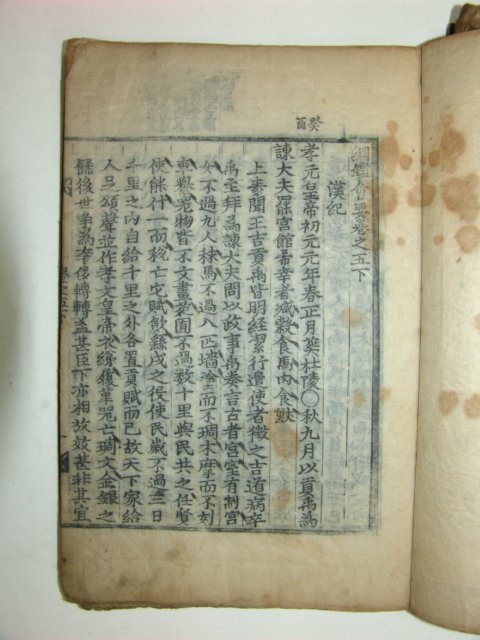 癸酉
綱鑑會要卷之五下
漢紀
孝元皇帝初元元年春正月葬杜陵〇秋九月以貢禹為
諫大夫罷宮館希幸者減穀食馬肉食獸
上素聞王吉貢禹皆明經潔行遣使者徵之吉道病卒
禹至拜為諫大夫問以政事禹奏言古者宮室有制宮
女不過九人秣馬不過八匹墻塗而不琱木摩而不刻
車輿器物皆不文畫苑囿不過數十里與民共之任賢
使能什一而稅亡它賦歛繇戍之役使民歲不過三日
千里之內自給千里之外各置貢賦而已故天下家給
人足頌聲並作孝文皇帝衣綈履革器亡琱文金銀之
儲後世爭為奢侈轉轉益甚臣下亦相放效甚非其宜